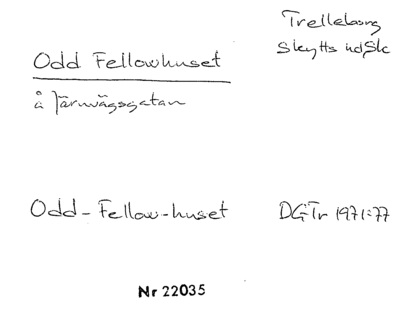 Trelleborg
Skytts hd Sk
Odd Fellowhuset
å Järnvägsgatan
Odd-Fellow-huset
DGTr 1971:77
Nr 22035